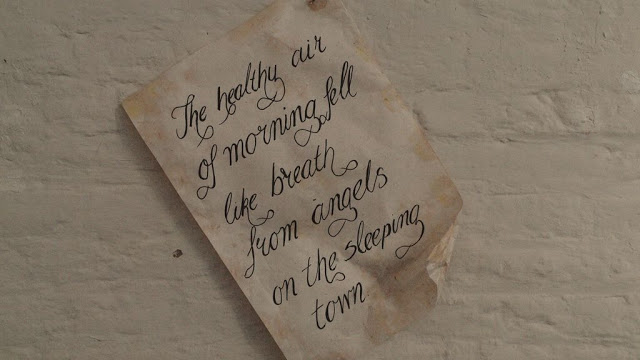 The healthy air
of morning fell
like breath
from angels
on the sleeping
town